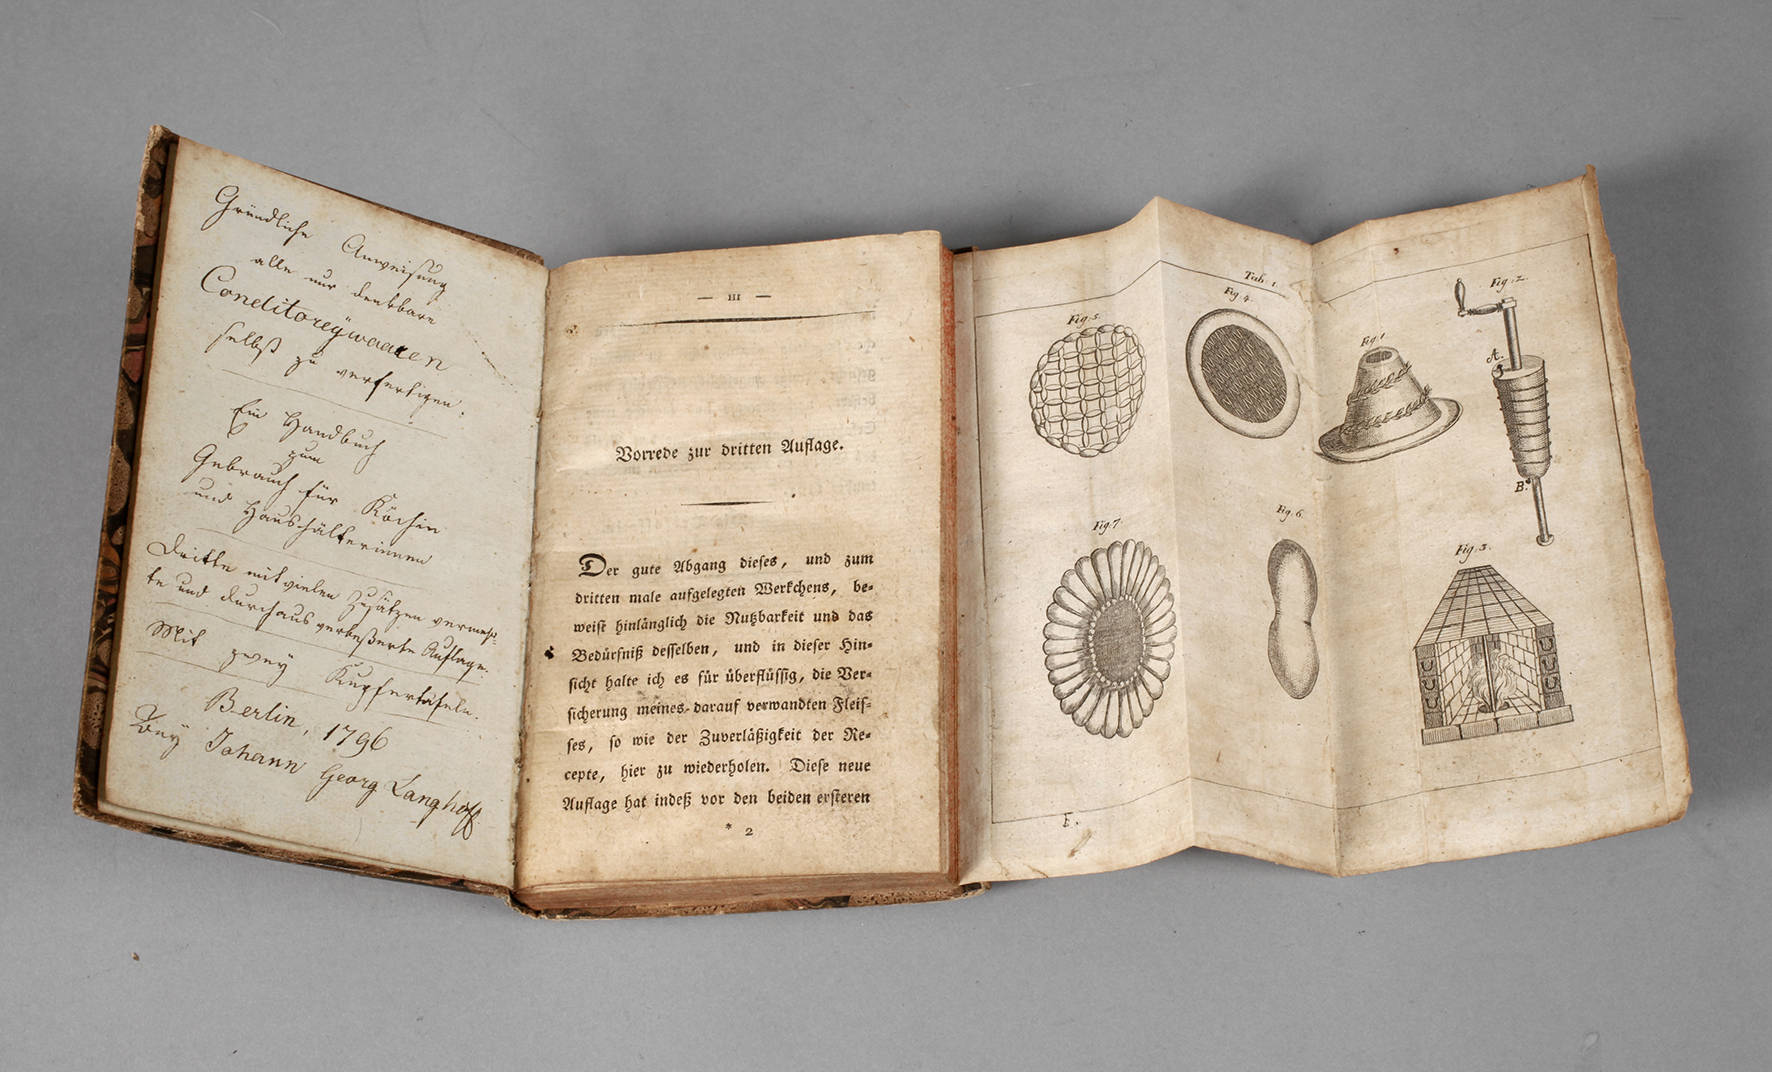 Gründliche Anweisung
alle nur denkbare
Conditoreÿwaaren
selbst zu verfertigen.
Ein Handbuch
zum
Gebrauch für Köchin
und Haushälterinnen
Dritte mit vielen Zusätzen vermehr-
te und durchaus verbeßerte Auflage.
Mit zweÿ Kupfertafeln.
Berlin, 1796
Beÿ Johann Georg Langhoff.
— III —
Vorrede zur dritten Auflage.
Der gute Abgang dieses, und zum
dritten male aufgelegten Werkchens, be-
weist hinlänglich die Nutzbarkeit und das
Bedürfniß desselben, und in dieser Hin-
sicht halte ich es für überflüssig, die Ver-
sicherung meines darauf verwandten Fleis-
ses, so wie der Zuverläßigkeit der Re-
cepte, hier zu wiederholen. Diese neue
Auflage hat indeß vor den beiden ersteren
* 2
Tab. 1.
Fig. 5.
Fig. 4.
Fig. 1
Fig. 2.
A.
B.
Fig. 7.
Fig. 6.
Fig. 3.